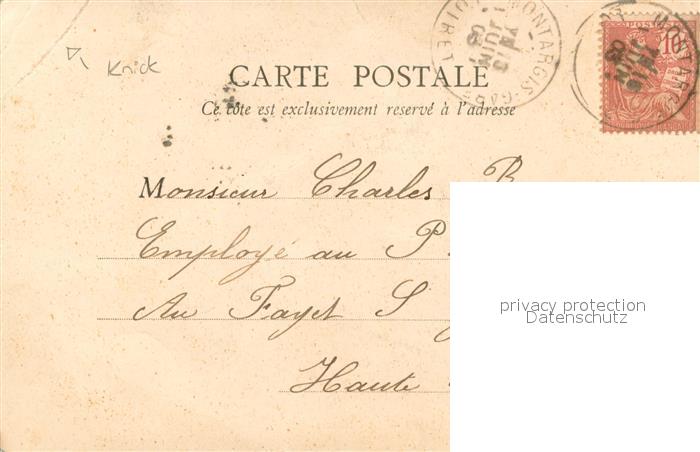 Knick
MONTARGIS-GARE
LOIRET
POSTES
10
CARTE POSTALE
Ce côté est exclusivement reservé à l'adresse
Monsieur Charles B
Employé au P
Au Fayet S
Haute
privacy protection
Datenschutz